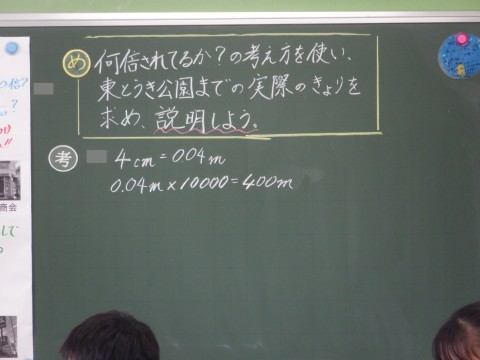 め 何倍されてるか?の考え方を使い、
東とうき公園までの実際のきょりを
求め、説明しよう。
考 4cm=0.04m
0.04m×10000=400m
商会